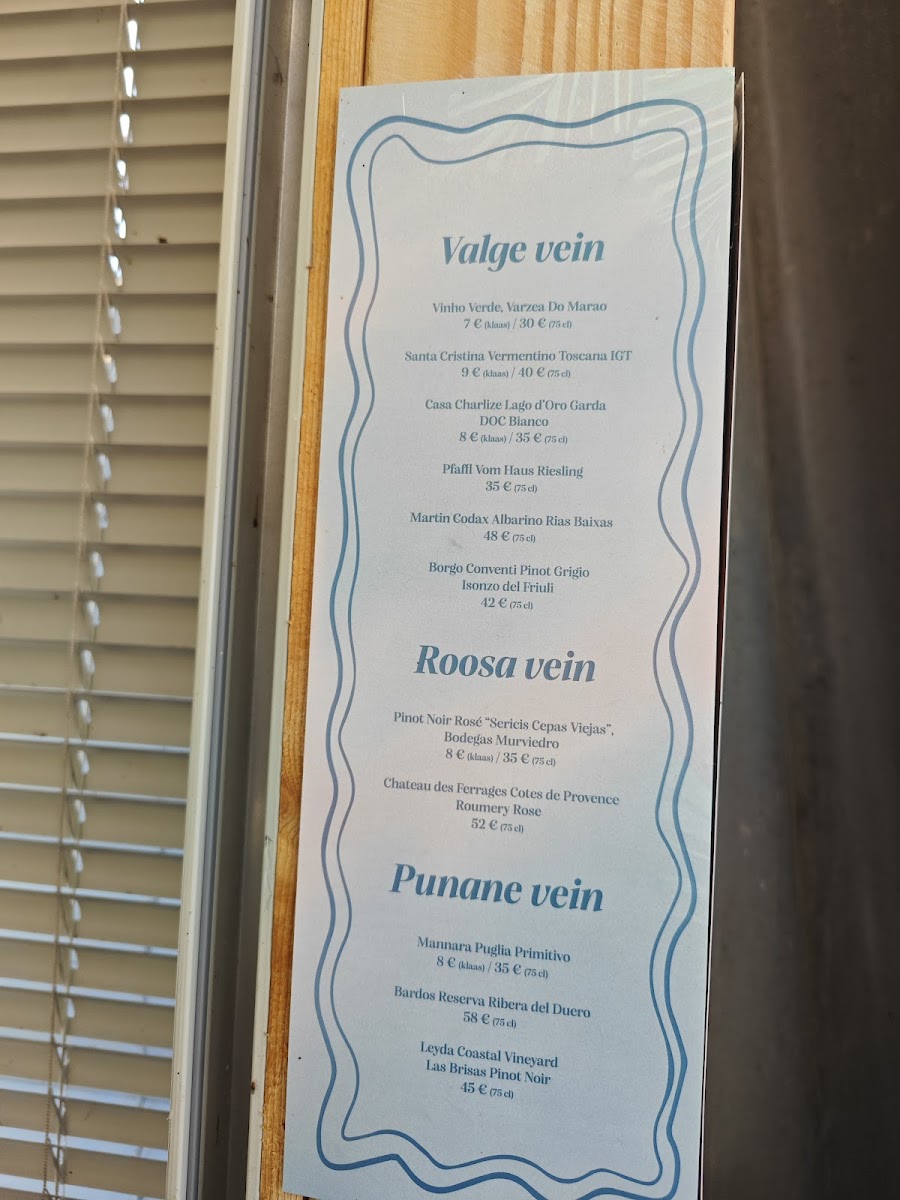 Valge vein
Vinho Verde, Varzea Do Marao
7 € (klaas) / 30 € (75 cl)
Santa Cristina Vermentino Toscana IGT
9 € (klaas) / 40 € (75 cl)
Casa Charlize Lago d'Oro Garda
DOC Bianco
8 € (klaas) / 35 € (75 cl)
Pfaffl Vom Haus Riesling
35 € (75 cl)
Martin Codax Albarino Rias Baixas
48 € (75 cl)
Borgo Conventi Pinot Grigio
Isonzo del Friuli
42 € (75 cl)
Roosa vein
Pinot Noir Rosé “Sericis Cepas Viejas”,
Bodegas Murviedro
8 € (klaas) / 35 € (75 cl)
Chateau des Ferrages Cotes de Provence
Roumery Rose
52 € (75 cl)
Punane vein
Mannara Puglia Primitivo
8 € (klaas) / 35 € (75 cl)
Bardos Reserva Ribera del Duero
58 € (75 cl)
Leyda Coastal Vineyard
Las Brisas Pinot Noir
45 € (75 cl)